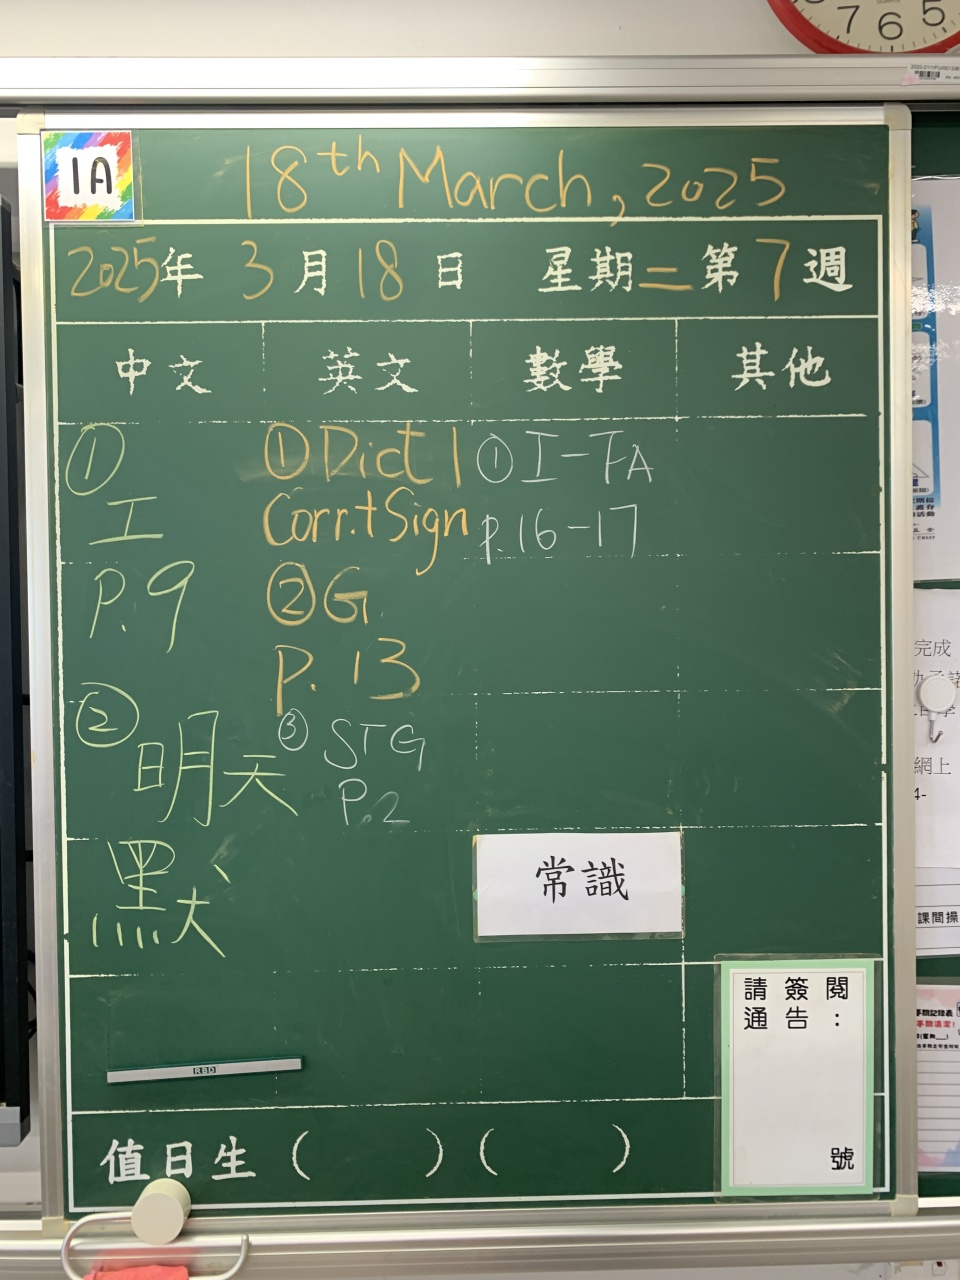 7 6 5
1A
18th March, 2025
2025年 3月18日 星期二 第7週
中文 英文 數學 其他
① 工 P.9
② 明天默
① Dict 1
Corr.+Sign
② G
P.13
③ STG
P.2
① I-FA
P.16-17
常識
請簽閱
通告：
號
RBD
值日生（ ）（ ）
完成
網上
4-
課間操